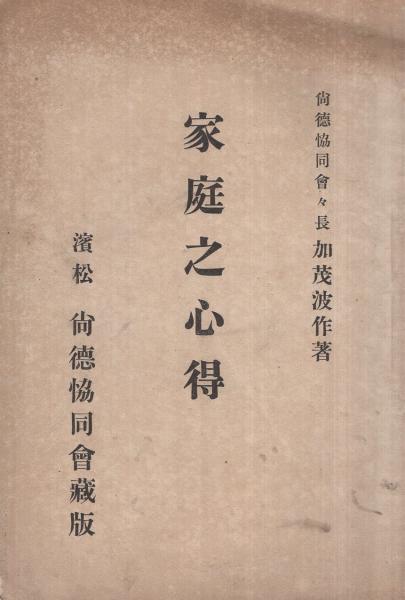 尙德恊同會々長 加茂波作著
家庭之心得
濱松 尙德恊同會藏版